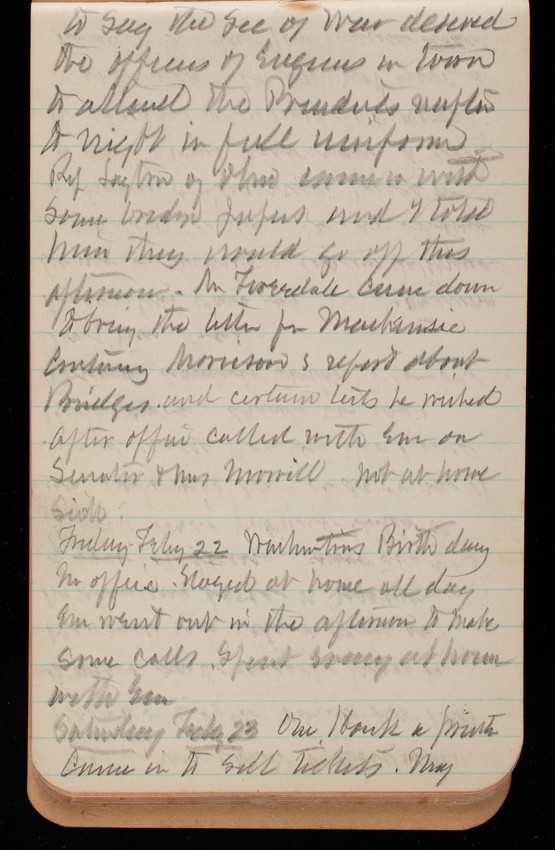 to say the Sec of War desired
the officers of Engines in town
to attend the Presidents
to night in full uniform
Rep Layton of Ohio came in with
some bridge papers and I told
him they would go off this
afternoon. Mr came down
to bring the letter for Mackenzie
containing Morrison s report about
Bridges and certain lists he wished
After office called with Em on
Senator & Mrs Morrill. Not at home
Sick.
Friday Feby 22 Washingtons Birth day
No office. Stayed at home all day
Em went out in the afternoon to make
some calls. Spent Evening at home
with Em
Saturday Feby 23 One a printer
Came in to sell tickets. May